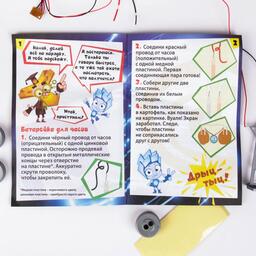 1
Нолик, делай
всё по порядку.
Я тебе подскажу.
Я постараюсь.
Только ты говори
быстрее,
Мчусь,
приступаем!
Батарейка для часов
1. Соедини чёрный провод от часов
(отрицательный) с одной цинковой
пластиной. Осторожно продевай
провода в открытые металлические
концы через отверстие
на пластине*. Аккуратно
скрути проволоку,
чтобы закрепить её.
2
2. Соедини красный
провод от часов
(положительный)
с одной медной
пластиной. Первая
соединяющая пара готова!
3. Собери другие две
пластины,
соединив их белым
проводом.
4. Вставь пластины
в картофель, как показано
на картинке. Вуаля! Экран
заработал. Следи,
чтобы пластины
не соприкасались
друг с другом!
Дрыц-
тыц!